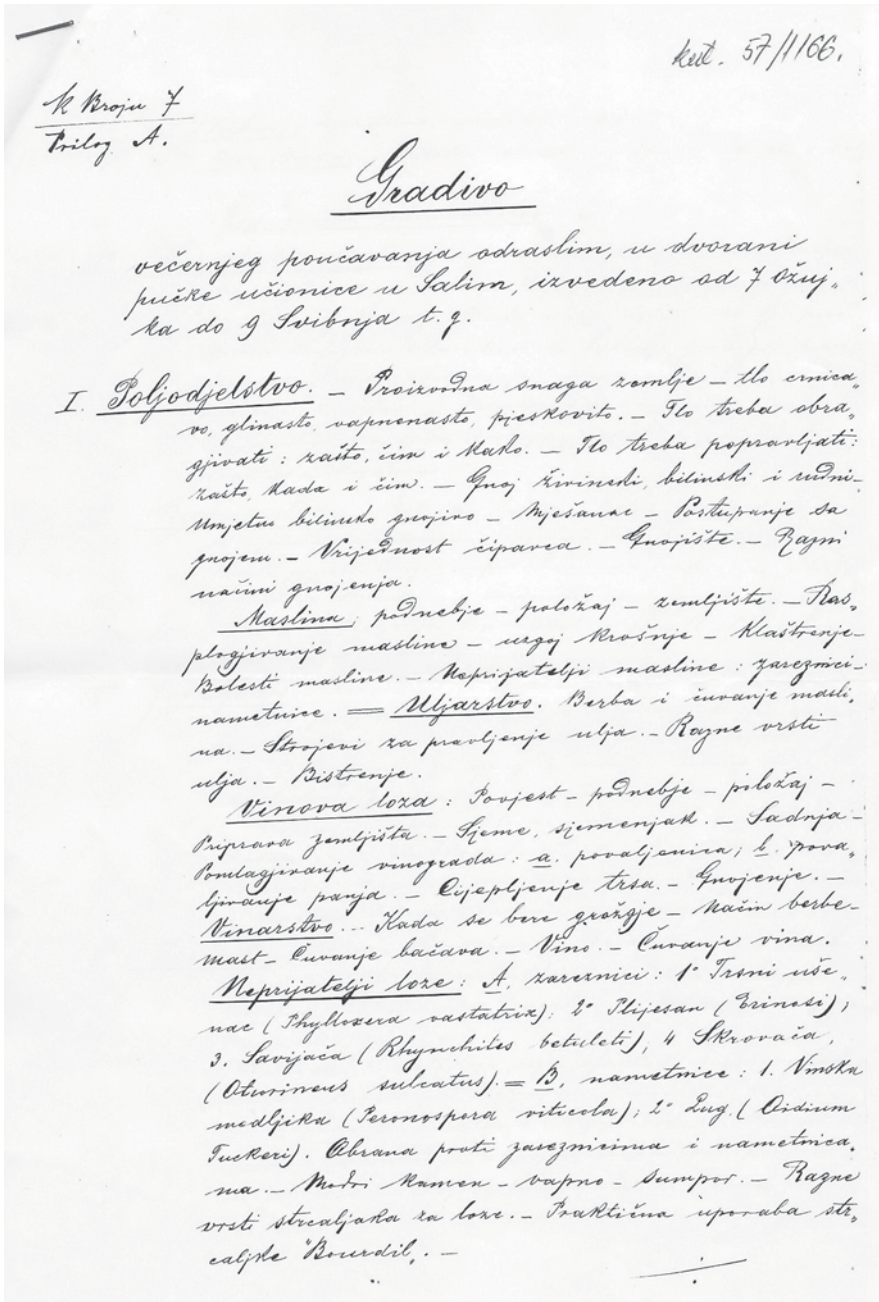 kut. 57/1166.
K Broju 7
Prilog A.
Gradivo
večernjeg poučavanja odraslim, u dvorani
pučke učionice u Salim, izvedeno od 7 Ožuj„
ka do 9 Svibnja t. g.
I. Poljodjelstvo. – Proizvodna snaga zemlje – tlo crnica„
vo, glinasto, vapnenasto, pjeskovito. – Tlo treba obra„
gjivati : zašto, čim i kako. – Tlo treba popravljati :
zašto, kada i čim. – Gnoj živinski, bilinski i rudni –
Umjetno bilinsko gnojivo – Mješanac – Postupanje sa
gnojem. – Vrijednost čiparca. – Gnojište. – Razni
načini gnojenja.
Maslina ; podnebje – položaj – zemljište. – Ras„
plogjivanje masline – uzgoj krošnje – Klaštrenje –
Bolesti masline. – Neprijatelji masline : zareznici –
nametnice. = Uljarstvo. Berba i čuvanje masli„
na. – Strojevi za pravljenje ulja. – Razne vrsti
ulja. – Bistrenje.
Vinova loza : Povjest – podnebje – položaj –
Priprava zemljišta. – Sjeme, sjemenjak. – Sadnja –
Pomlagjivanje vinograda : a. povaljenica ; b. pova„
ljivanje panja. – Cijepljenje trsa. – Gnojenje. –
Vinarstvo. – Kada se bere grožgje – Način berbe –
mast – Čuvanje bačava. – Vino. – Čuvanje vina.
Neprijatelji loze : A, zareznici : 1° Trsni uše„
nac (Phylloxera vastatrix) ; 2° Plijesan (Erinosi) ;
3. Savijača (Rhynchites betuleti), 4 Skrovača,
(Oturineus sulcatus). = B, nametnice : 1. Vinska
medljika (Peronospera viticola) ; 2° Lug. (Oidium
Tuckeri). Obrana proti zareznicima i nametnica„
ma. – Modri kamen – vapno – sumpor. – Razne
vrsti strcaljaka za loze. – Praktična uporaba str„
caljke "Bourdil„. –